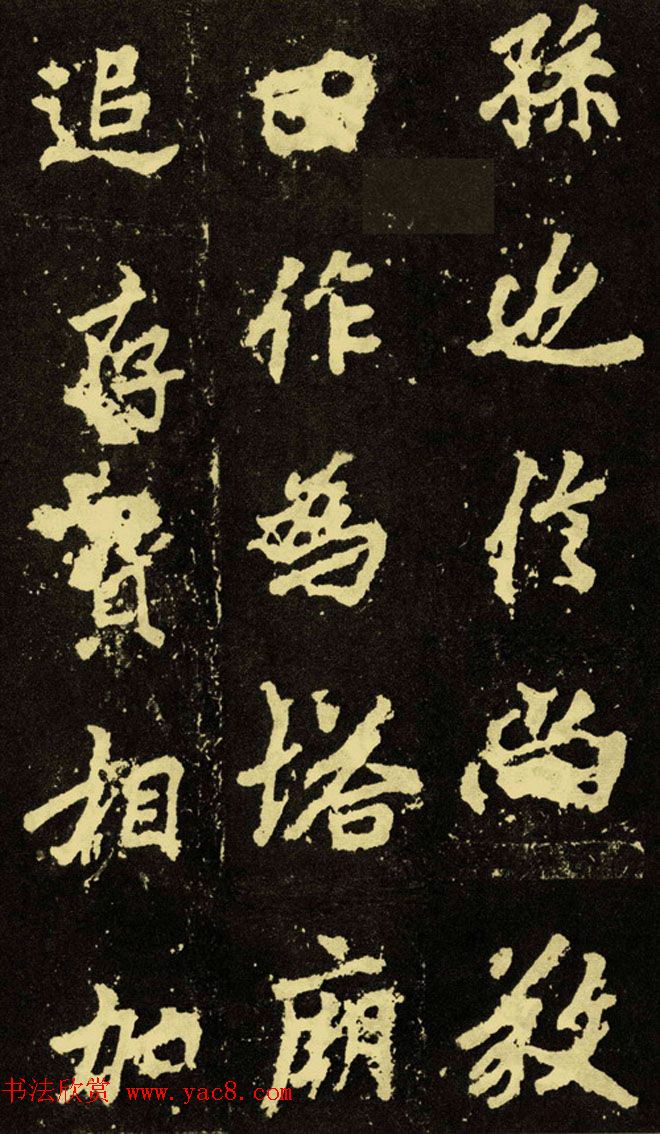 孫也信尚敬
田作為塔廟
追存寶相加
书法欣赏 www.yac8.com